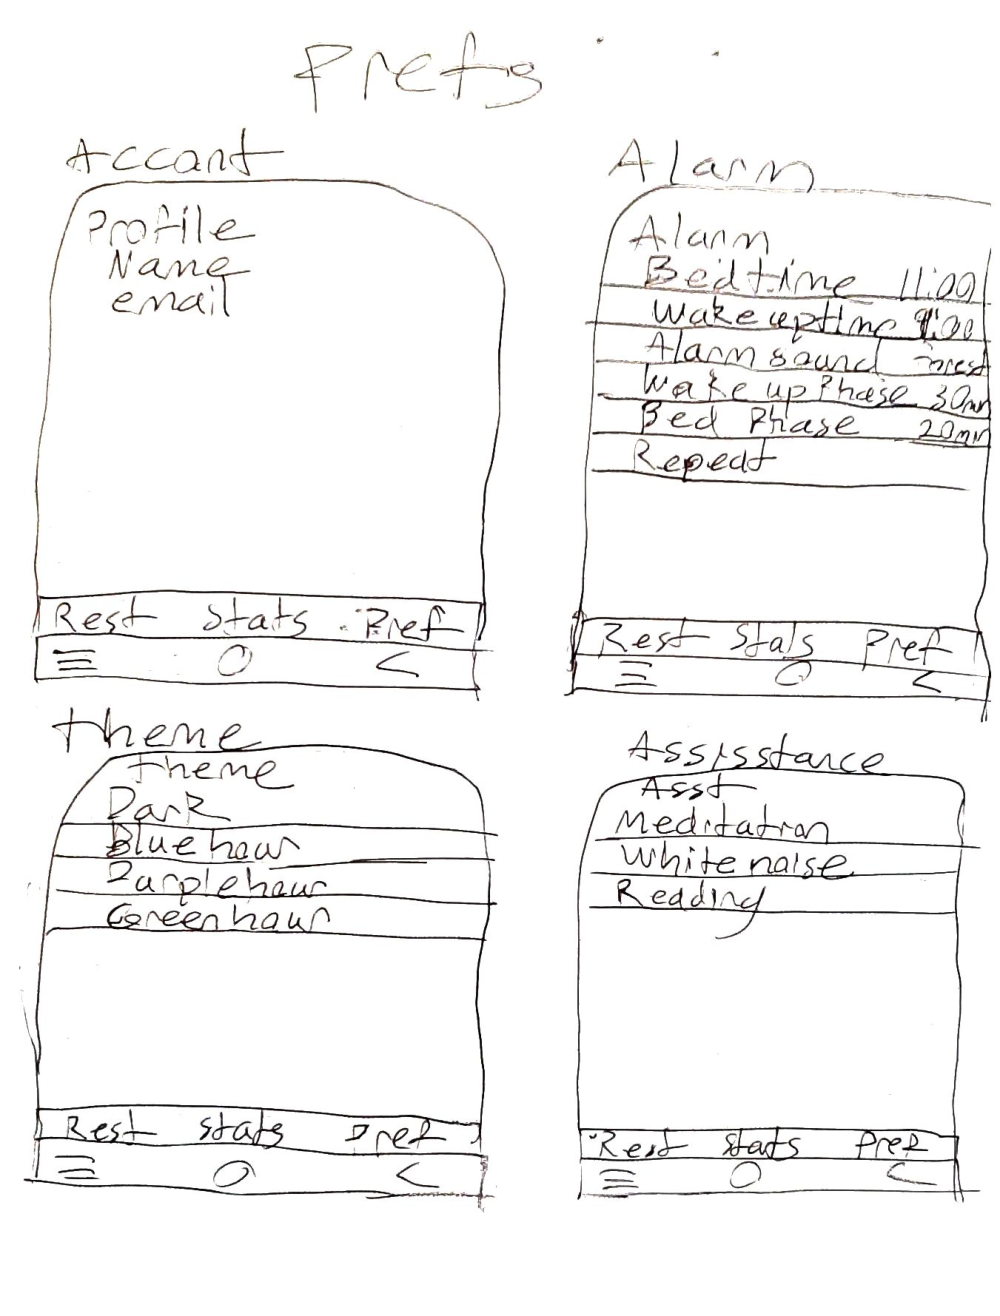 Prefs
Accant
Profile
Name
email
Rest Stats Pref
Alarm
Alarm
Bedtime 11:00
Wake uptime :00
Alarm sound Forest
Wake up Phase 30mn
Bed Phase 20mn
Repeat
Rest Stats Pref
theme
theme
Dark
Blue haur
Purple haur
Green haur
Rest stats Pref
Assisstance
Asst
Meditation
White noise
Reading
Rest stats Pref